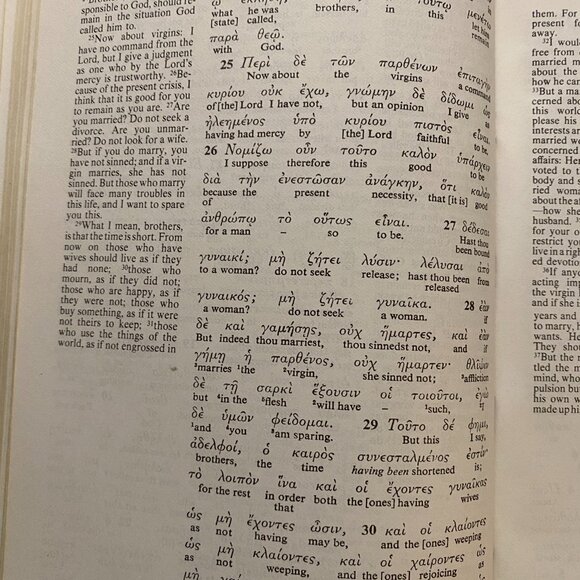 sponsible to God, should re-
main in the situation God
called him to.
25Now about virgins: I
have no command from the
Lord, but I give a judgment
as one who by the Lord's
mercy is trustworthy. 26Be-
cause of the present crisis, I
think that it is good for you
to remain as you are. 27Are
you married? Do not seek a
divorce. Are you unmar-
ried? Do not look for a wife.
28But if you do marry, you
have not sinned; and if a vir-
gin marries, she has not
sinned. But those who marry
will face many troubles in
this life, and I want to spare
you this.
29What I mean, brothers,
is that the time is short. From
now on those who have
wives should live as if they
had none; 30those who
mourn, as if they did not;
those who are happy, as if
they were not; those who
buy something, as if it were
not theirs to keep; 31those
who use the things of the
world, as if not engrossed in
what he was brothers, in this let him
[state] called, remain
παρὰ θεῷ.
with God.
25 Περὶ δὲ τῶν παρθένων ἐπιταγὴν
Now about the virgins a command
κυρίου οὐκ ἔχω, γνώμην δὲ δίδωμι ὡς
of [the] Lord I have not, but an opinion I give as
ἠλεημένος ὑπὸ κυρίου πιστὸς εἶναι.
having had mercy by [the] Lord faithful to be.
26 Νομίζω οὖν τοῦτο καλὸν ὑπάρχειν
I suppose therefore this good to be
διὰ τὴν ἐνεστῶσαν ἀνάγκην, ὅτι καλὸν
because the present necessity, that [it is] good
of
ἀνθρώπῳ τὸ οὕτως εἶναι. 27 δέδεσαι
for a man – so to be. Hast thou
been bound
γυναικί; μὴ ζήτει λύσιν· λέλυσαι ἀπὸ
to a woman? do not seek release; hast thou been from
released
γυναικός; μὴ ζήτει γυναῖκα. 28 ἐὰν
a woman? do not seek a woman. if
δὲ καὶ γαμήσῃς, οὐχ ἥμαρτες, καὶ ἐὰν
But indeed thou marriest, thou sinnedst not, and if
γήμῃ ἡ παρθένος, οὐχ ἥμαρτεν· θλῖψιν
3marries 1the 2virgin, she sinned not; 3affliction
δὲ τῇ σαρκὶ ἕξουσιν οἱ τοιοῦτοι, ἐγὼ
but 4in the 5flesh 2will have – 1such, 2I
δὲ ὑμῶν φείδομαι. 29 Τοῦτο δέ φημι,
1and 4you 3am sparing. But this I say,
ἀδελφοί, ὁ καιρὸς συνεσταλμένος ἐστίν·
brothers, the time having been shortened is;
τὸ λοιπὸν ἵνα καὶ οἱ ἔχοντες γυναῖκας
for the rest in order both the [ones] having wives
ὡς μὴ ἔχοντες ὦσιν, 30 καὶ οἱ κλαίοντες
as not having may be, and the [ones] weeping
ὡς μὴ κλαίοντες, καὶ οἱ χαίροντες ὡς
as not weeping, and the [ones] rejoicing as
them. For
present for
away.
32I would
free from
married m
about the
how he can
33But a mar
cerned ab
this world
please his
interests ar
married w
concerned
affairs: Her
voted to th
body and
ried woma
about the aff
—how she
husband.
for your o
restrict you
live in a righ
ed devotion
36If any
acting imp
the virgin
years and
to marry,
wants. He
They shou
37But the
tled the m
mind, who
pulsion but
his own
made up his